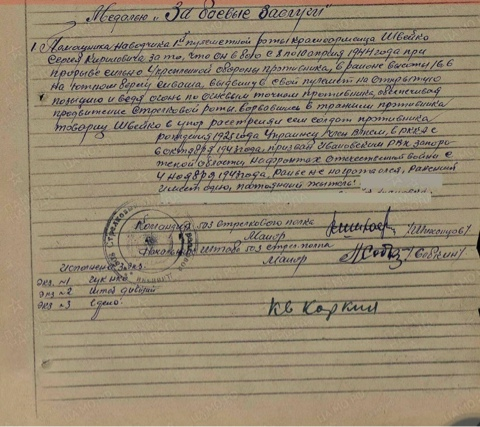 Медалью "За боевые заслуги"
1. Помощника наводчика 1ой пулеметной роты красноармейца Швейко
Сергея Кирилловича за то, что он в бою с 8 по 10 апреля 1944 года при
прорыве сильно укрепленной обороны противника, в районе высоты 16.6
на южном берегу Сиваша, выдвинув свой пулемет на открытую
позицию и ведя огонь по огневым точкам противника, обеспечивал
продвижение стрелковой роты. Ворвавшись в траншеи противника
товарищ Швейко в упор расстрелял сем солдат противника
рождения 1925 года украинец член ВЛКСМ, в РККА с
октября 1943 года, призван Ивановским РВК запоро-
жской области, на фронтах отечественной войны с
4 ноября 1943 года, ранее не награждался, ранений
имеет одно, постоянный житель:
Командир 503 стрелкового полка
Майор
Начальник штаба 503 стрел. полка
Майор
Исполнено 3 экз.
экз. №1
экз №2 Штаб дивизии
экз №3 в дело.